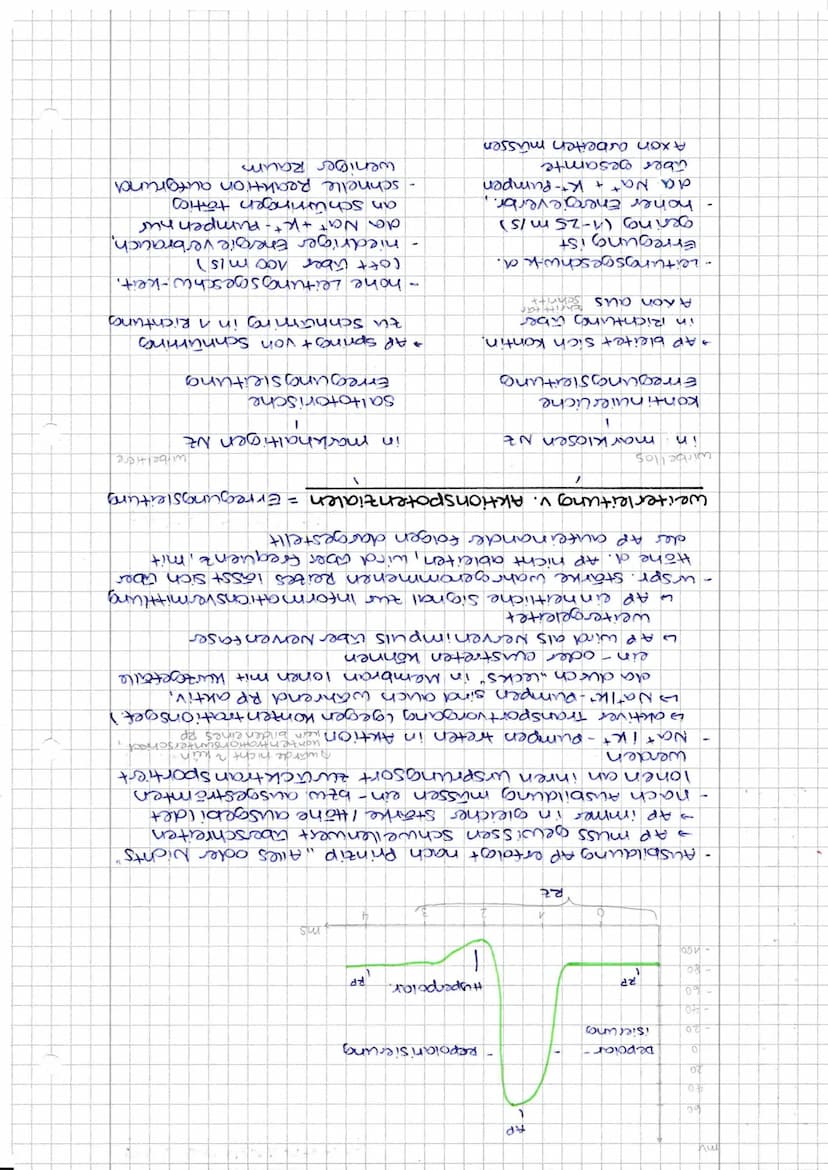 mV
AP
60
40
20
0
- 20
- 40
- 60
- 80
- 100
Depolar-
isierung
- Repolarisierung
RP
Hyperpolar.
RP
0
1
2
3
4
ms
RZ
- Ausbildung AP erfolgt nach Prinzip „Alles oder Nichts"
→ AP muss gewissen Schwellenwert überschreiten
→ AP immer in gleicher Stärke / Höhe ausgebildet
- nach Ausbildung müssen ein- bzw. ausgeströmten
Ionen an ihren Ursprungsort zurücktransportiert
werden
- Na⁺ / K⁺ - Pumpen treten in Aktion
würde nicht sein
Konzentrationsunterschied,
kein bilden eines RP
↳ aktiver Transportvorgang (gegen Konzentrationsgef.)
↳ Na⁺/K⁺-Pumpen sind auch während RP aktiv,
da durch „Lecks" in Membran Ionen mit Kurzgefälle
ein- oder austreten können
↳ AP wird als Nervenimpuls über Nervenfaser
weitergeleitet
↳ AP einheitliche Signal zur Informationsvermittlung
- urspr. Stärke wahrgenommenen Reizes lässt sich über
Höhe d. AP nicht ableiten, wird über Frequenz, mit
der AP aufeinander folgen dargestellt
Weiterleitung v. Aktionspotenzialen = Erregungsleitung
wirbellos
in marklosen NZ
kontinuierliche
Erregungsleitung
→ AP bleitet sich kontin.
in Richtung über
Axon aus
schritt für
schritt
- Leitungsgeschw.k d.
Erregung ist
gering (1-25 m/s)
- hoher Energieverbr.,
da Na⁺ + K⁺-Pumpen
über gesamte
Axon arbeiten müssen
wirbeltiere
in markhaltigen NZ
saltatorische
Erregungsleitung
→ AP springt von Schnürring
zu Schnürring in 1 Richtung
- hohe Leitungsgeschw.-keit.
(oft über 100 m/s)
- niedriger Energieverbrauch,
da Na⁺ + K⁺-Pumpen nur
an Schnürringen tätig
- schnelle Reaktion aufgrund
weniger Raum